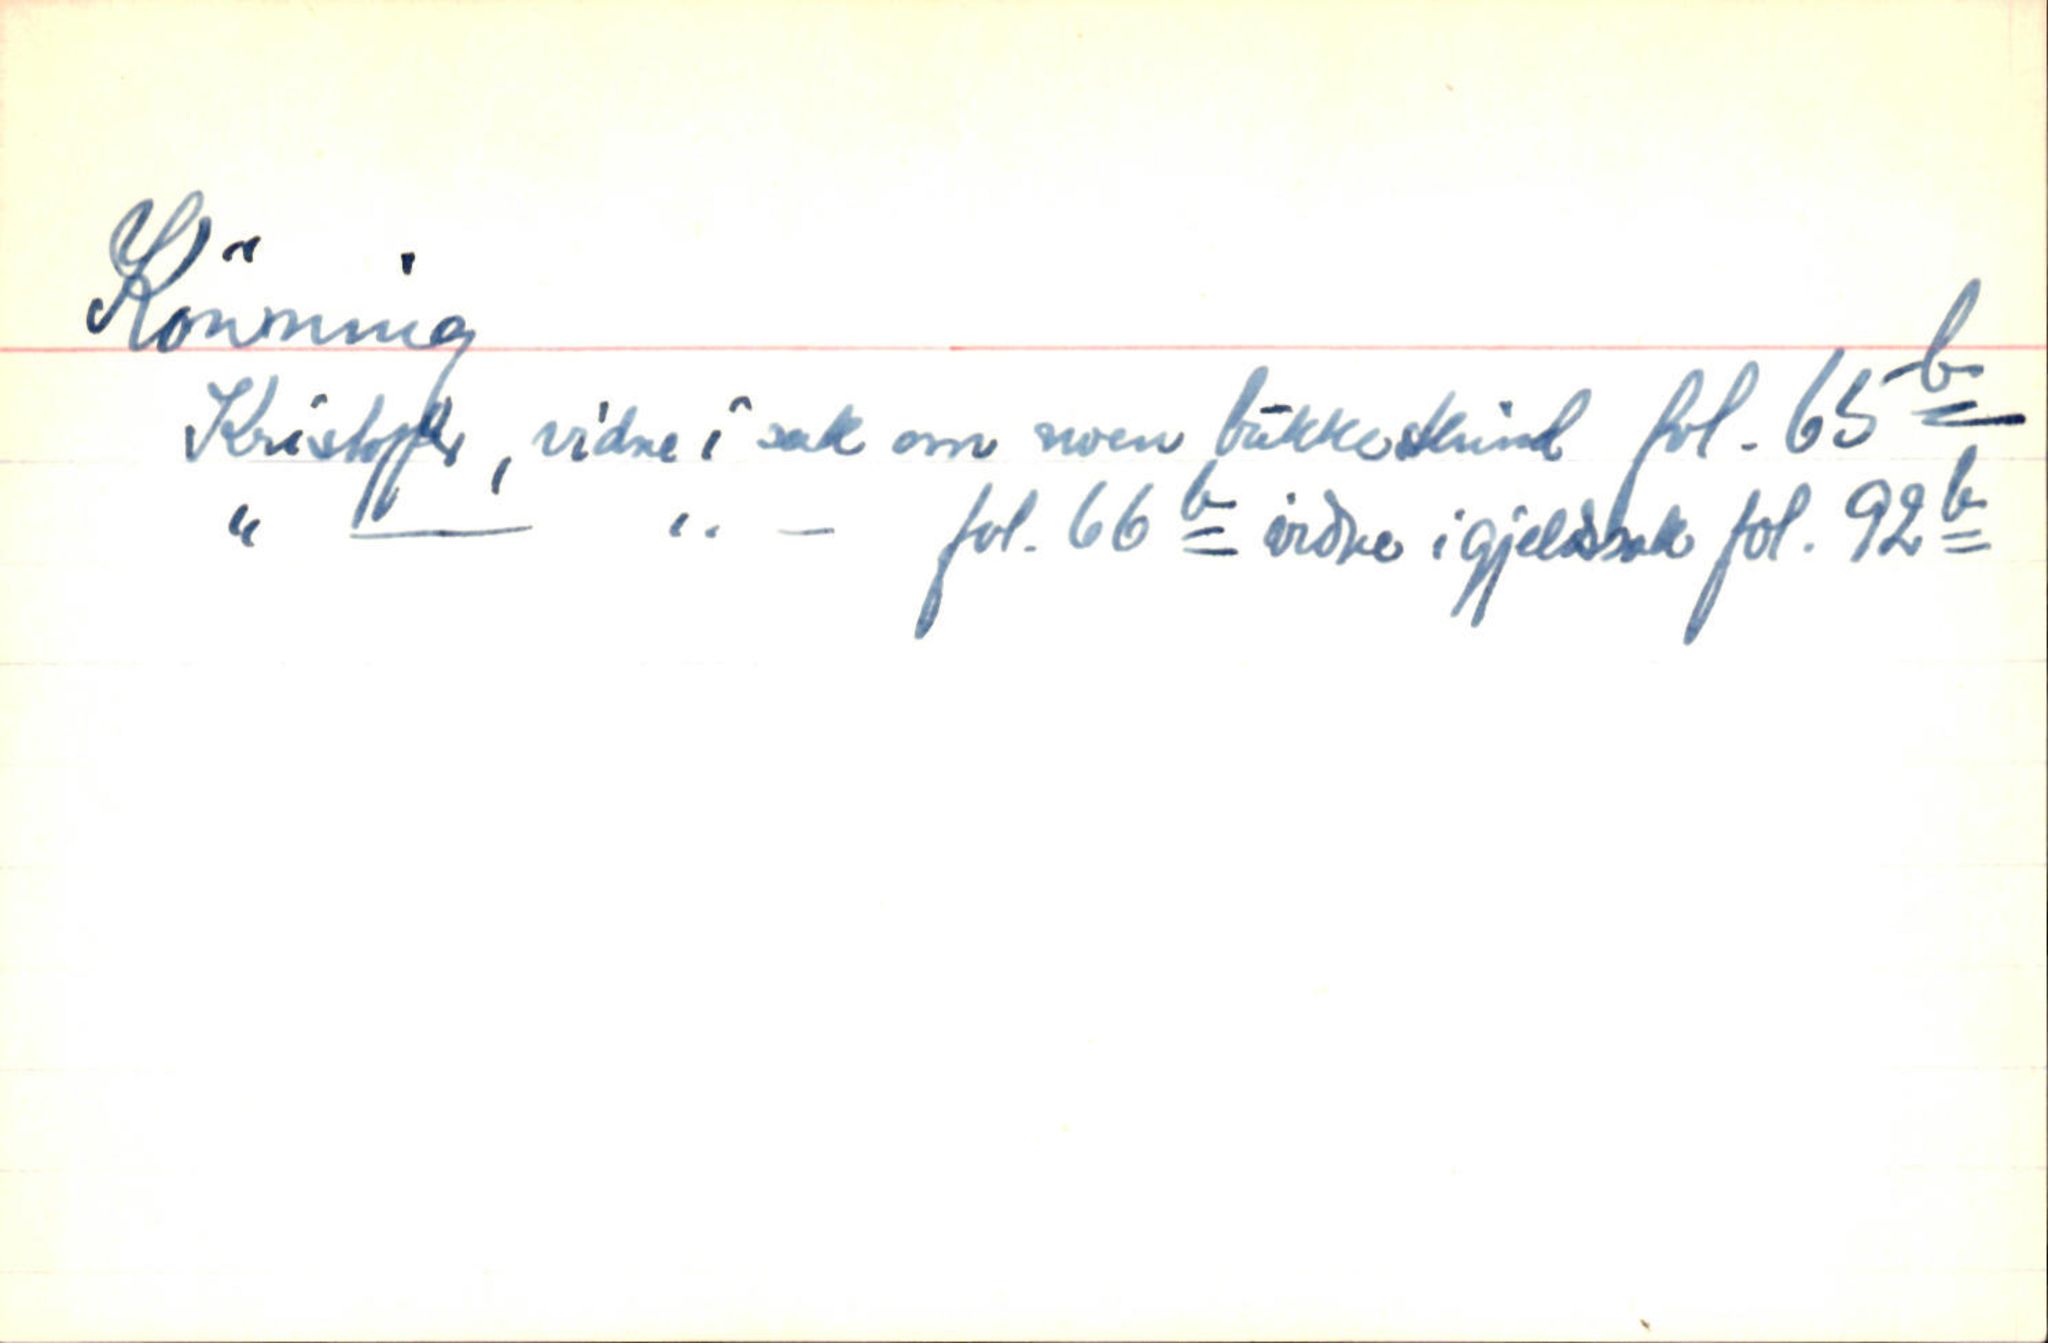 Könning
Kristoffer, vidne i sak om noen bukkeskind fol. 65 b
" — " — fol. 66 b vidne i gjeldssak fol. 92 b